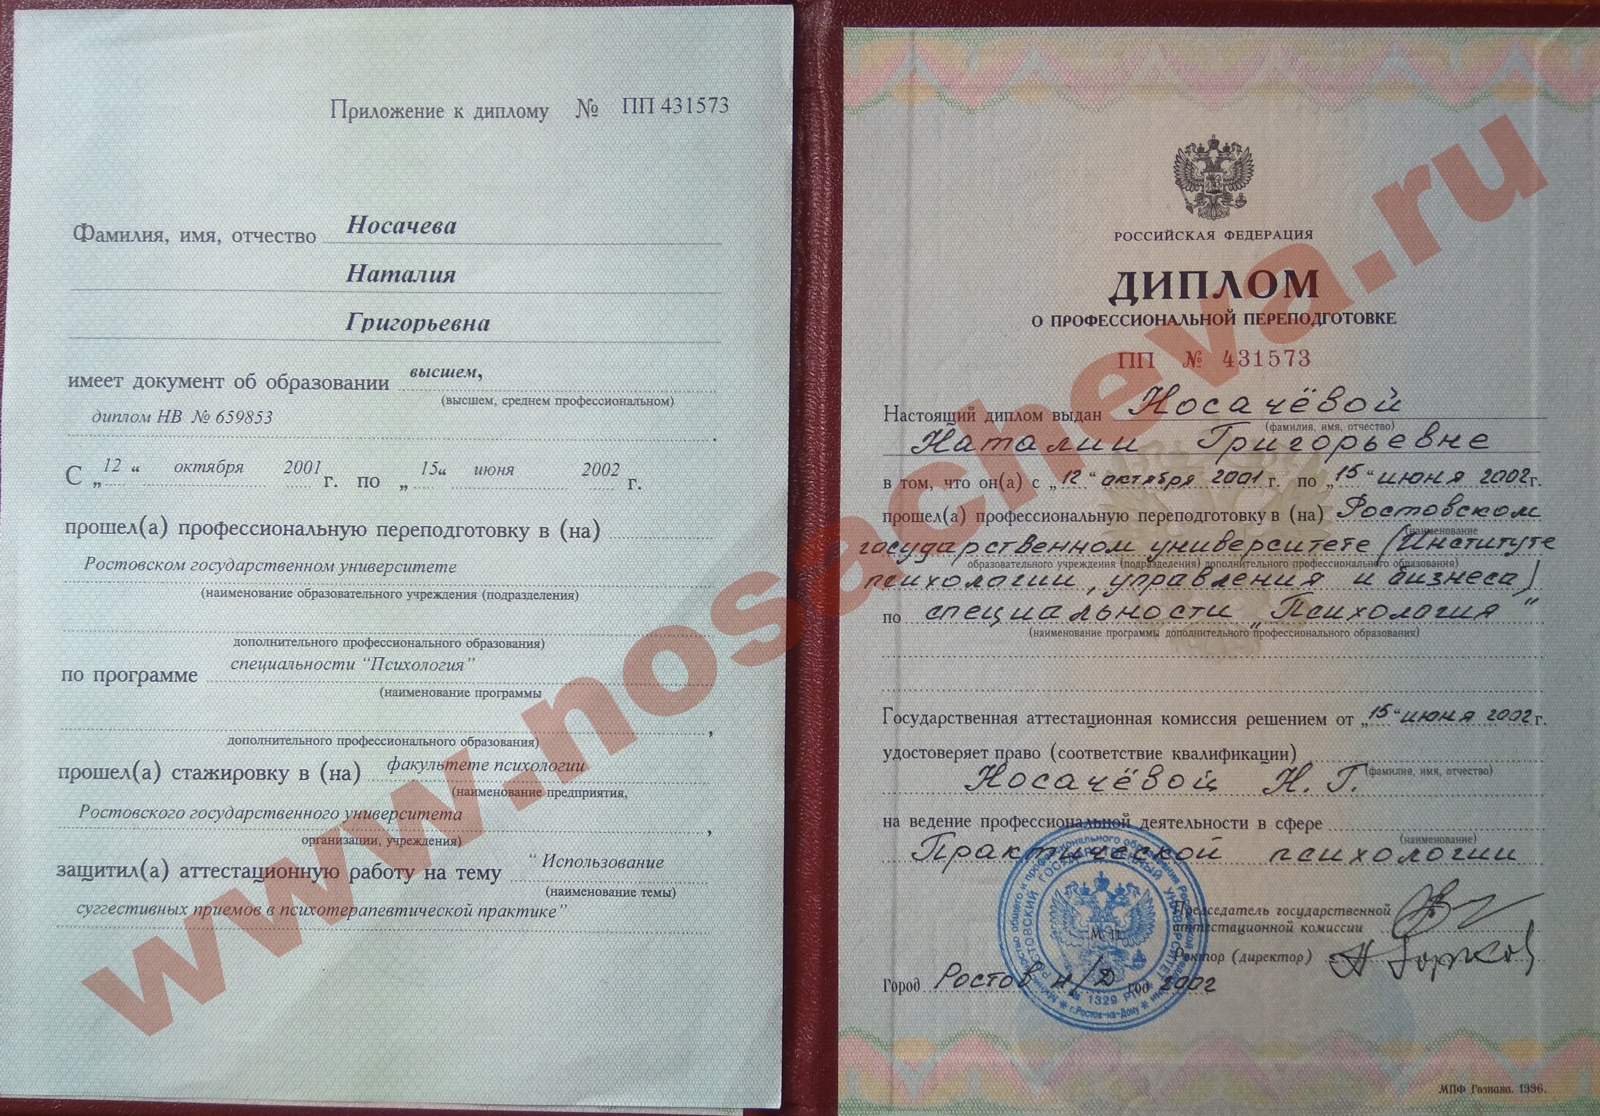 Приложение к диплому № ПП 431573
Фамилия, имя, отчество Носачева
Наталия
Григорьевна
имеет документ об образовании высшем,
(высшем, среднем профессиональном)
диплом НВ № 659853
С „12“ октября 2001 г. по „15“ июня 2002 г.
прошел(а) профессиональную переподготовку в (на)
Ростовском государственном университете
(наименование образовательного учреждения (подразделения)
дополнительного профессионального образования)
по программе специальности “Психология”
(наименование программы
дополнительного профессионального образования) ,
прошел(а) стажировку в (на) факультете психологии
(наименование предприятия,
Ростовского государственного университета ,
организации, учреждения)
защитил(а) аттестационную работу на тему “ Использование
(наименование темы)
суггестивных приемов в психотерапевтической практике”
РОССИЙСКАЯ ФЕДЕРАЦИЯ
ДИПЛОМ
О ПРОФЕССИОНАЛЬНОЙ ПЕРЕПОДГОТОВКЕ
ПП № 431573
Настоящий диплом выдан Носачёвой
(фамилия, имя, отчество)
Наталии Григорьевне
в том, что он(а) с „12“ октября 2001 г. по „15“ июня 2002 г.
прошел(а) профессиональную переподготовку в (на) Ростовском
(наименование
государственном университете (Институте
образовательного учреждения (подразделения) дополнительного профессионального образования)
психологии, управления и бизнеса)
по специальности „Психология“
(наименование программы дополнительного профессионального образования)
Государственная аттестационная комиссия решением от „15“ июня 2002 г.
удостоверяет право (соответствие квалификации)
(фамилия, имя, отчество)
Носачёвой Н.Г.
на ведение профессиональной деятельности в сфере
(наименование)
Практической психологии
Председатель государственной
аттестационной комиссии
М.П.
Ректор (директор)
Город Ростов н/Д год 2002
РОСТОВСКИЙ ГОСУДАРСТВЕННЫЙ УНИВЕРСИТЕТ
г.Ростов-на-Дону
МПФ Гознака. 1996.
www.nosacheva.ru